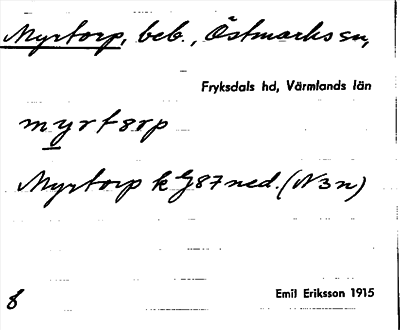 Myrtorp, beb., Östmarks sn,
Fryksdals hd, Värmlands län
myrtorp
Myrtorp k G87 ned. (N3n)
Emil Eriksson 1915